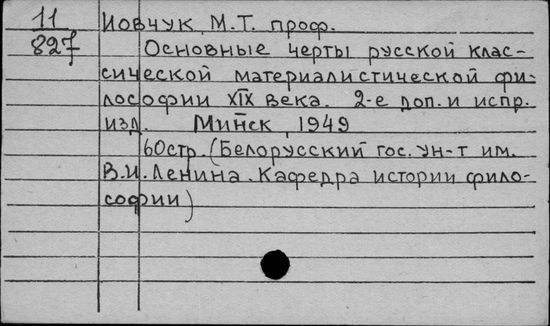 11
827
Иовчук, М.Т. проф.
Основные черты русской клас-
сической материалистической фи-
лософии XIX века. 2-е доп. и испр.
изд. Минск, 1949
60стр. (Белорусский гос. ун-т им.
В.И. Ленина. Кафедра истории фило-
софии)